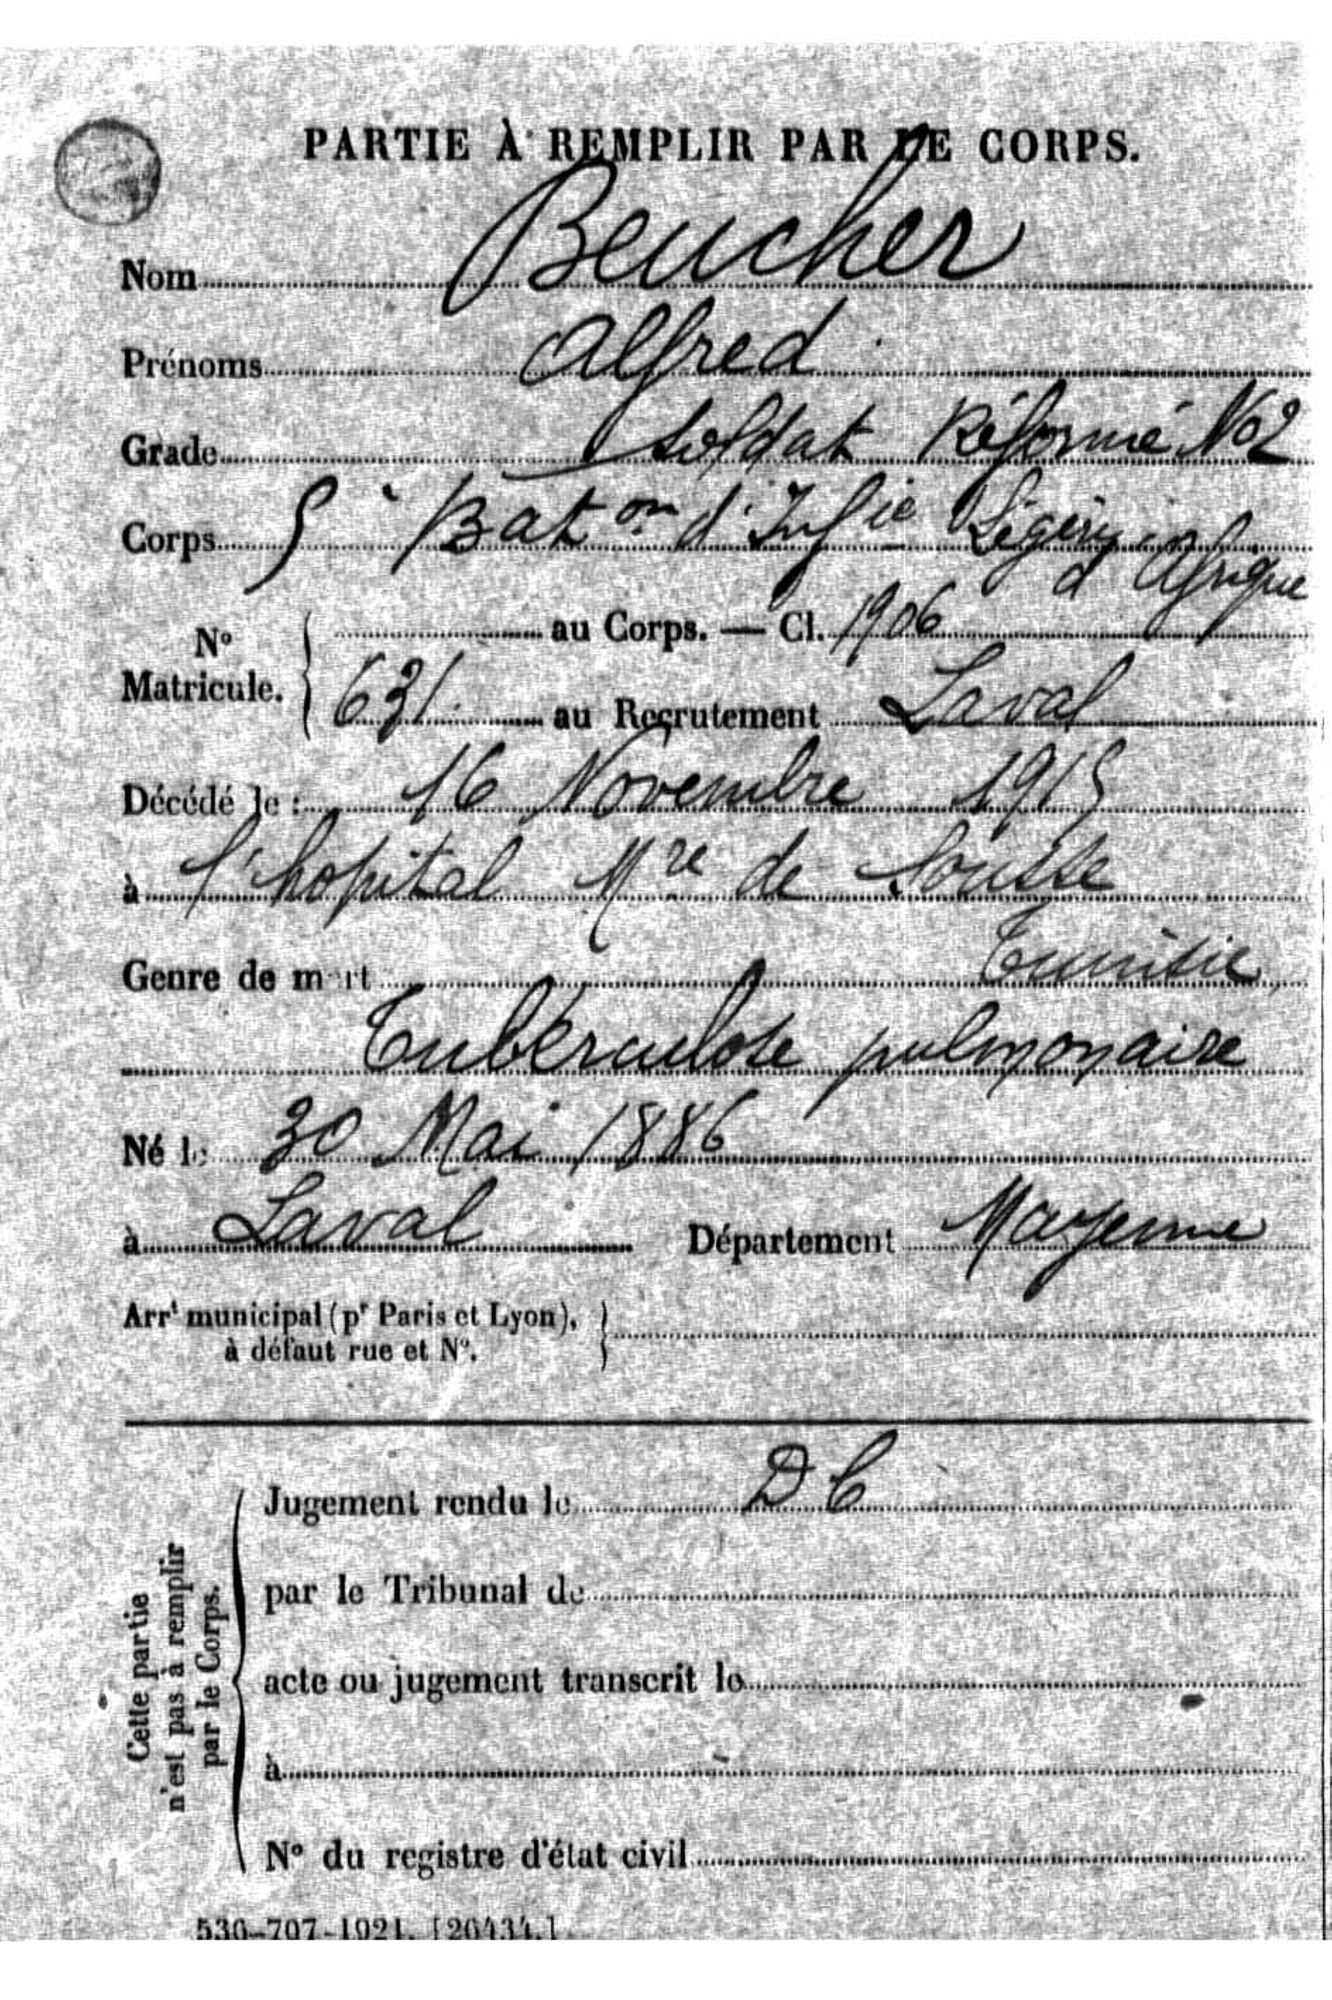 PARTIE À REMPLIR PAR LE CORPS.
Nom Beucher
Prénoms Alfred
Grade Soldat Réformé No 2
Corps 5e Baton d'Infie Légère
d'Afrique
No Matricule. { au Corps. — Cl. 1906
631. au Recrutement Laval
Décédé le : 16 Novembre 1915
à l'hopital Mre de Sousse
Genre de mort Tunisie
Tuberculose pulmonaire
Né le 30 Mai 1886
à Laval Département Mayenne
Arrt municipal (pr Paris et Lyon), }
à défaut rue et No.
Cette partie
n'est pas à remplir
par le Corps.
Jugement rendu le DC
par le Tribunal de
acte ou jugement transcrit le
à
No du registre d'état civil
530-707-1921. [26434.]